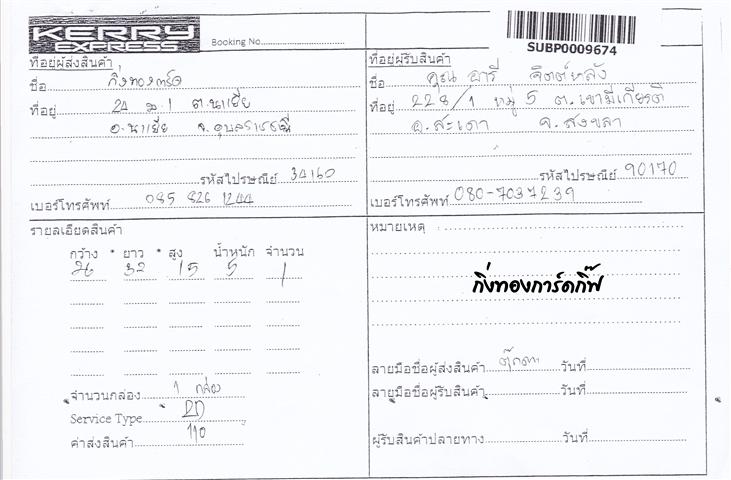 KERRY EXPRESS
Booking No.
SUBP0009674
ที่อยู่ผู้ส่งสินค้า
ชื่อ กิ่งทองการ์ด
ที่อยู่ 24 ม.1 ต.นาเยีย
อ.นาเยีย จ.อุบลราชธานี
รหัสไปรษณีย์ 34160
เบอร์โทรศัพท์ 085 826 1244
ที่อยู่ผู้รับสินค้า
ชื่อ คุณ อารี จิตต์หลัง
ที่อยู่ 228/1 หมู่ 5 ต.เขามีเกียรติ
อ.สะเดา จ.สงขลา
รหัสไปรษณีย์ 90170
เบอร์โทรศัพท์ 080-7037239
รายละเอียดสินค้า
กว้าง * ยาว * สูง น้ำหนัก จำนวน
26 32 15 5 1
จำนวนกล่อง 1 กล่อง
Service Type 2D
ค่าส่งสินค้า 110
หมายเหตุ
กิ่งทองการ์ดกิ๊ฟ
ลายมือชื่อผู้ส่งสินค้า ตุ๊กตา วันที่
ลายมือชื่อผู้รับสินค้า วันที่
ผู้รับสินค้าปลายทาง วันที่